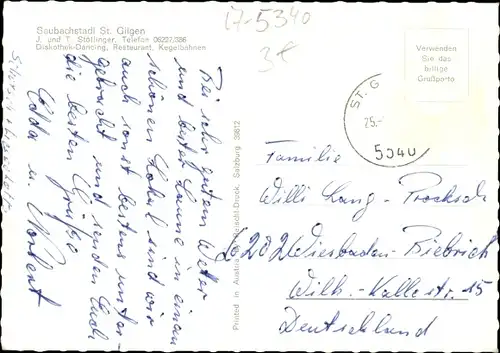 Saubachstadl St. Gilgen
J. und T. Stötlinger, Telefon 06227/386
Diskothek-Dancing, Restaurant, Kegelbahnen
17-5340
3€
Verwenden
Sie das
billige
Großporto
ST. G
25.-
5340
Bei sehr gutem Wetter
und bester Laune in einem
schönen Lokal sind wir
auch sonst bestens unter-
gebracht und senden Euch
die besten Grüße
Edda u. Norbert
Printed in Austria
Druck, Salzburg 38612
Familie
Willi Lang-Procksch
6202 Wiesbaden-Biebrich
Wilh.-Kalle str. 15
Deutschland